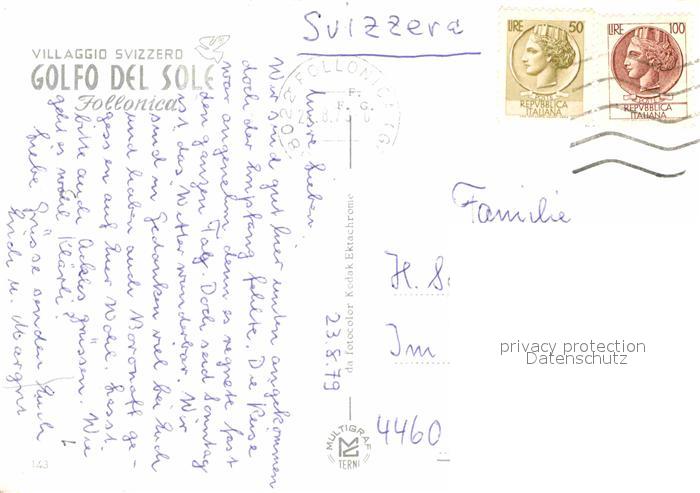 Svizzera
VILLAGGIO SVIZZERO
GOLFO DEL SOLE
Follonica
LIRE 50
REPVBBLICA
ITALIANA
LIRE 100
REPVBBLICA
ITALIANA
58022 FOLLONICA (G
F.
F. G.
Meine Lieben.
Wir sind gut hier unten angekommen
doch der Empfang fehlte. Die Reise
war angenehm denn es regnete fast
den ganzen Tag. Doch seid Sonntag
ist das Wetter wunderbar. Wir
sind in Gedanken viel bei Euch
und haben auch ge-
gessen auf Euer Wohl. Lasst
bitte auch Ackles grüssen. Wie
geht es wohl Klärli?
Liebe Grüsse senden Euch
Ruedi u. Margrit
23.8.79
da fotocolor Kodak Ektachrome
MULTIGRAF
TERNI
143
Familie
H. S
Im
4460
privacy protection
Datenschutz